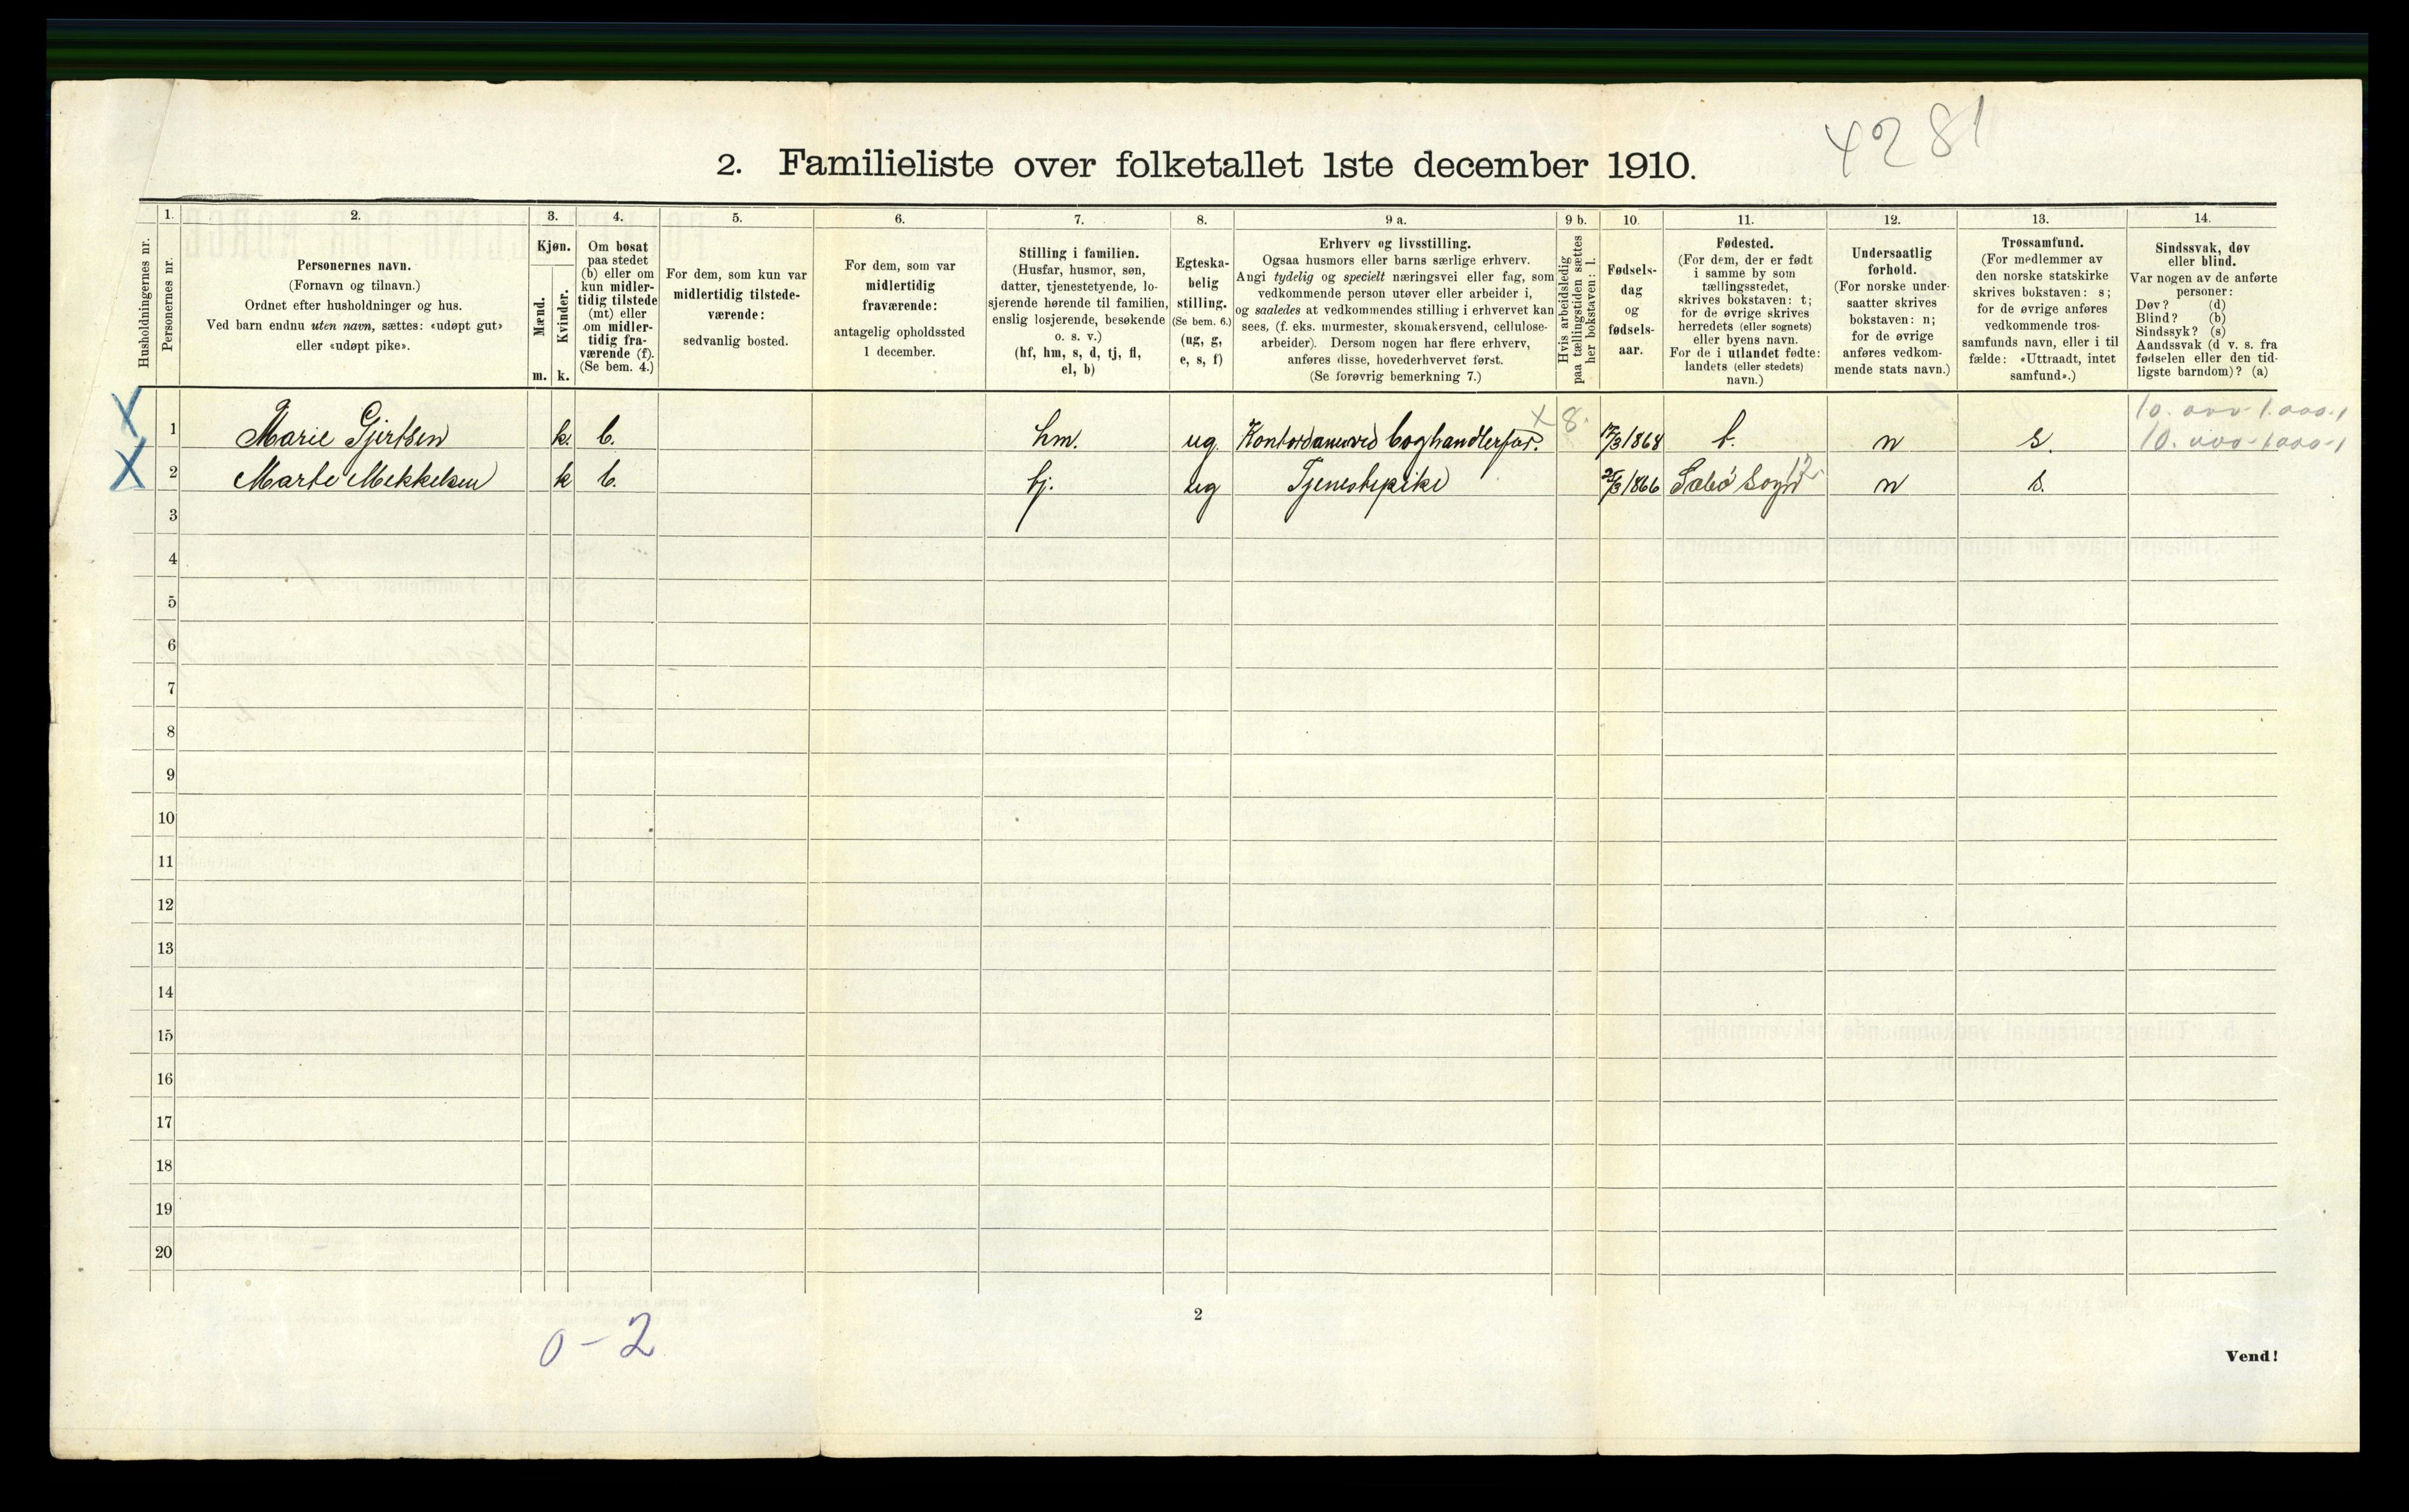 4281
2. Familieliste over folketallet 1ste december 1910.
Husholdningernes nr.
1.
Personernes nr.
2.
Personernes navn.
(Fornavn og tilnavn.)
Ordnet efter husholdninger og hus.
Ved barn endnu uten navn, sættes: «udøpt gut»
eller «udøpt pike».
3.
Kjøn.
Mænd.
m.
Kvinder.
k.
4.
Om bosat
paa stedet
(b) eller om
kun midler-
tidig tilstede
(mt) eller
om midler-
tidig fra-
værende (f).
(Se bem. 4.)
5.
For dem, som kun var
midlertidig tilstede-
værende:
sedvanlig bosted.
6.
For dem, som var
midlertidig
fraværende:
antagelig opholdssted
1 december.
7.
Stilling i familien.
(Husfar, husmor, søn,
datter, tjenestetyende, lo-
sjerende hørende til familien,
enslig losjerende, besøkende
o. s. v.)
(hf, hm, s, d, tj, fl,
el, b)
8.
Egteska-
belig
stilling.
(Se bem. 6.)
(ug, g,
e, s, f)
9 a.
Erhverv og livsstilling.
Ogsaa husmors eller barns særlige erhverv.
Angi tydelig og specielt næringsvei eller fag, som
vedkommende person utøver eller arbeider i,
og saaledes at vedkommendes stilling i erhvervet kan
sees, (f. eks. murmester, skomakersvend, cellulose-
arbeider). Dersom nogen har flere erhverv,
anføres disse, hovederhvervet først.
(Se forøvrig bemerkning 7.)
9 b.
Hvis arbeidsledig
paa tællingstiden sættes
her bokstaven: l.
10.
Fødsels-
dag
og
fødsels-
aar.
11.
Fødested.
(For dem, der er født
i samme by som
tællingsstedet,
skrives bokstaven: t;
for de øvrige skrives
herredets (eller sognets)
eller byens navn.
For de i utlandet fødte:
landets (eller stedets)
navn.)
12.
Undersaatlig
forhold.
(For norske under-
saatter skrives
bokstaven: n;
for de øvrige
anføres vedkom-
mende stats navn.)
13.
Trossamfund.
(For medlemmer av
den norske statskirke
skrives bokstaven: s;
for de øvrige anføres
vedkommende tros-
samfunds navn, eller i til
fælde: «Uttraadt, intet
samfund».)
14.
Sindssvak, døv
eller blind.
Var nogen av de anførte
personer:
Døv? (d)
Blind? (b)
Sindssyk? (s)
Aandssvak (d v. s. fra
fødselen eller den tid-
ligste barndom)? (a)
10.000-1.000-1
X 1 Marie Gjertsen k. b. hm. ug. Kontordame ved boghandlerfor. x 8. 17/3 1868 t. n s. 10.000-1000-1
X 2 Marte Mekkelsen k b. tj. ug Tjenestepike 25/3 1866 Sæbø Sogn 12 n s.
3
4
5
6
7
8
9
10
11
12
13
14
15
16
17
18
19
20
2
0-2
Vend!